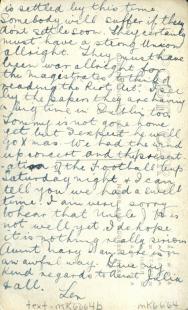 is settled by this time
Somebody well suffer if they
dont settle soon. They certainly
must have a strong Union
allright. They must have
been war allright for
the magestrates to the
reading the Riot Act. I see
by the papers they are having
a time in Dublin too
Tommy is not gone home
yet but I expect he will
go Xmas. We had the wind
up concert and the present
ation of the Football Cup
saturday night & I can
tell you we had a
time. I am very sorry
to hear that Uncle J is
not well yet I do hope
it is nothing really serious
Aunt Mary Jane is in
an awful way. Give my
kind regards to Aunt
& all. Len
text-mK6664b
mK6664